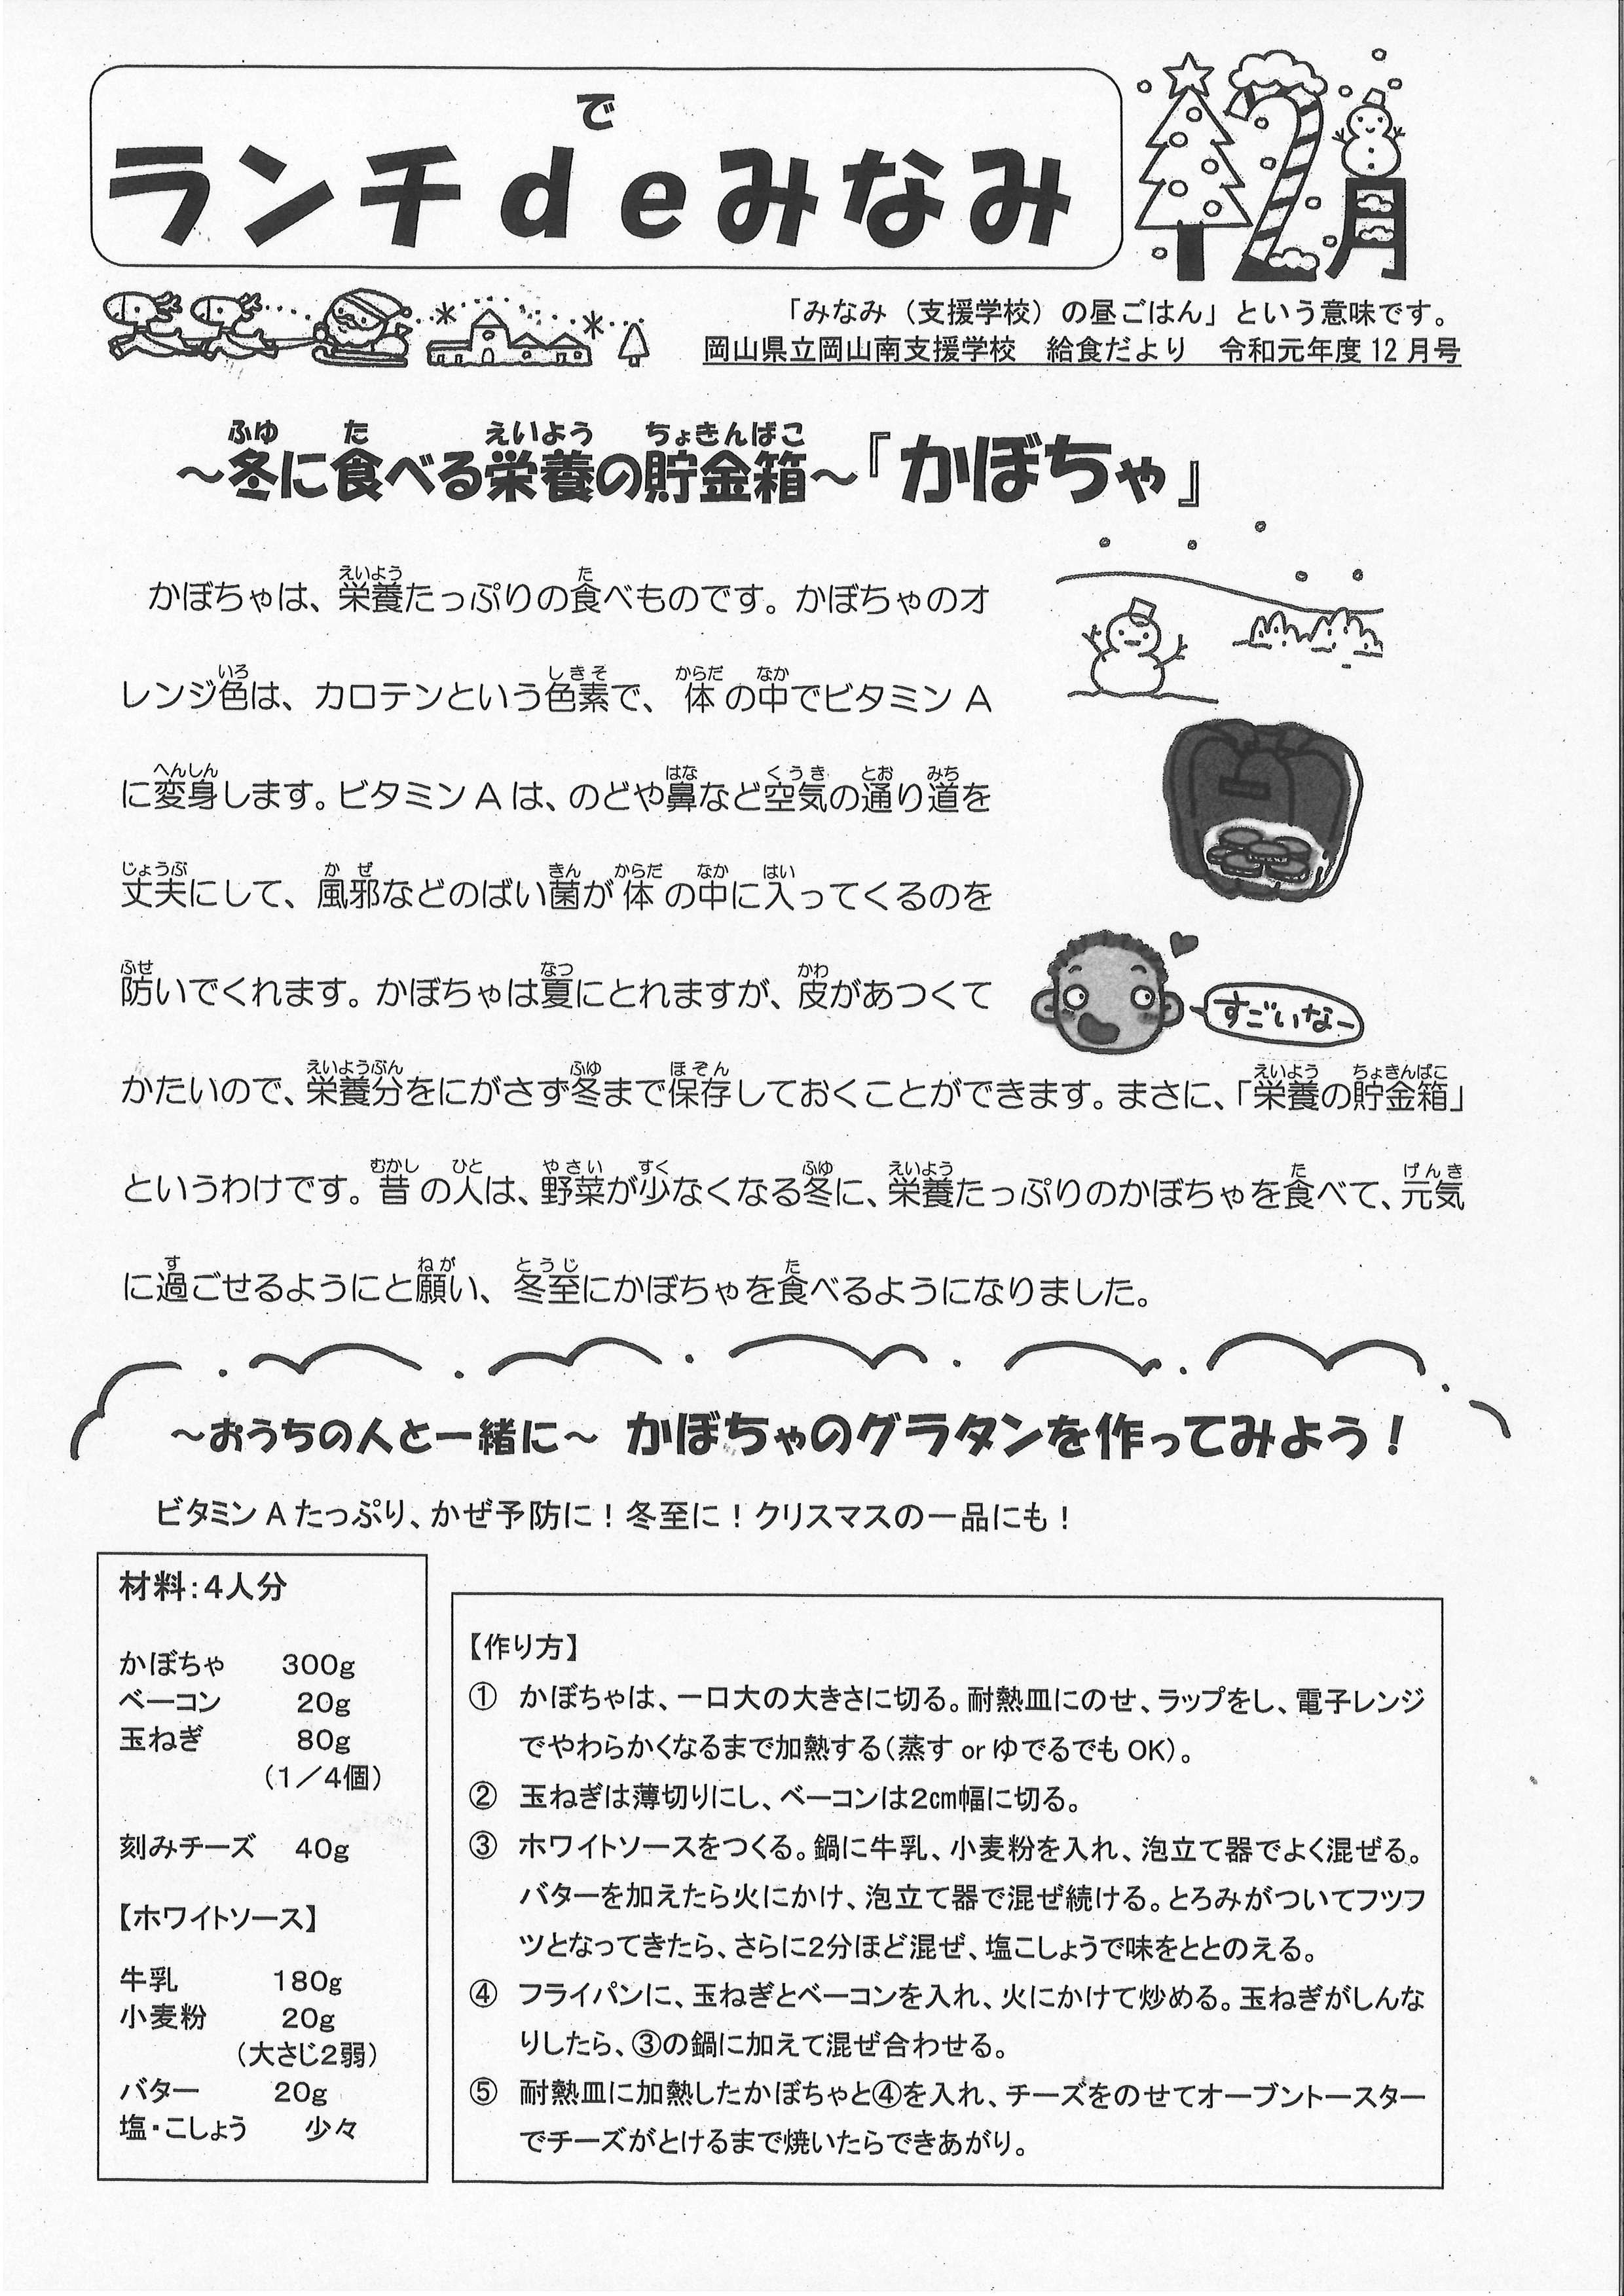 で
ランチdeみなみ
12月
「みなみ（支援学校）の昼ごはん」という意味です。
岡山県立岡山南支援学校　給食だより　令和元年度12月号
ふゆ　た　えいよう　ちょきんばこ
～冬に食べる栄養の貯金箱～『かぼちゃ』
えいよう　た
かぼちゃは、栄養たっぷりの食べものです。かぼちゃのオ
いろ　しきそ　からだ　なか
レンジ色は、カロテンという色素で、体の中でビタミンA
へんしん　はな　くうき　とお　みち
に変身します。ビタミンAは、のどや鼻など空気の通り道を
じょうぶ　かぜ　きん　からだ　なか　はい
丈夫にして、風邪などのばい菌が体の中に入ってくるのを
ふせ　なつ　かわ
防いでくれます。かぼちゃは夏にとれますが、皮があつくて
すごいなー
えいようぶん　ふゆ　ほぞん　えいよう　ちょきんばこ
かたいので、栄養分をにがさず冬まで保存しておくことができます。まさに、「栄養の貯金箱」
むかし　ひと　やさい　すく　ふゆ　えいよう　た　げんき
というわけです。昔の人は、野菜が少なくなる冬に、栄養たっぷりのかぼちゃを食べて、元気
す　ねが　とうじ　た
に過ごせるようにと願い、冬至にかぼちゃを食べるようになりました。
～おうちの人と一緒に～ かぼちゃのグラタンを作ってみよう！
ビタミンAたっぷり、かぜ予防に！冬至に！クリスマスの一品にも！
材料：4人分
かぼちゃ　300g
ベーコン　20g
玉ねぎ　80g
（1／4個）
刻みチーズ　40g
【ホワイトソース】
牛乳　180g
小麦粉　20g
（大さじ2弱）
バター　20g
塩・こしょう　少々
【作り方】
① かぼちゃは、一口大の大きさに切る。耐熱皿にのせ、ラップをし、電子レンジ
でやわらかくなるまで加熱する（蒸す or ゆでるでも OK）。
② 玉ねぎは薄切りにし、ベーコンは2㎝幅に切る。
③ ホワイトソースをつくる。鍋に牛乳、小麦粉を入れ、泡立て器でよく混ぜる。
バターを加えたら火にかけ、泡立て器で混ぜ続ける。とろみがついてフツフ
ツとなってきたら、さらに2分ほど混ぜ、塩こしょうで味をととのえる。
④ フライパンに、玉ねぎとベーコンを入れ、火にかけて炒める。玉ねぎがしんな
りしたら、③の鍋に加えて混ぜ合わせる。
⑤ 耐熱皿に加熱したかぼちゃと④を入れ、チーズをのせてオーブントースター
でチーズがとけるまで焼いたらできあがり。